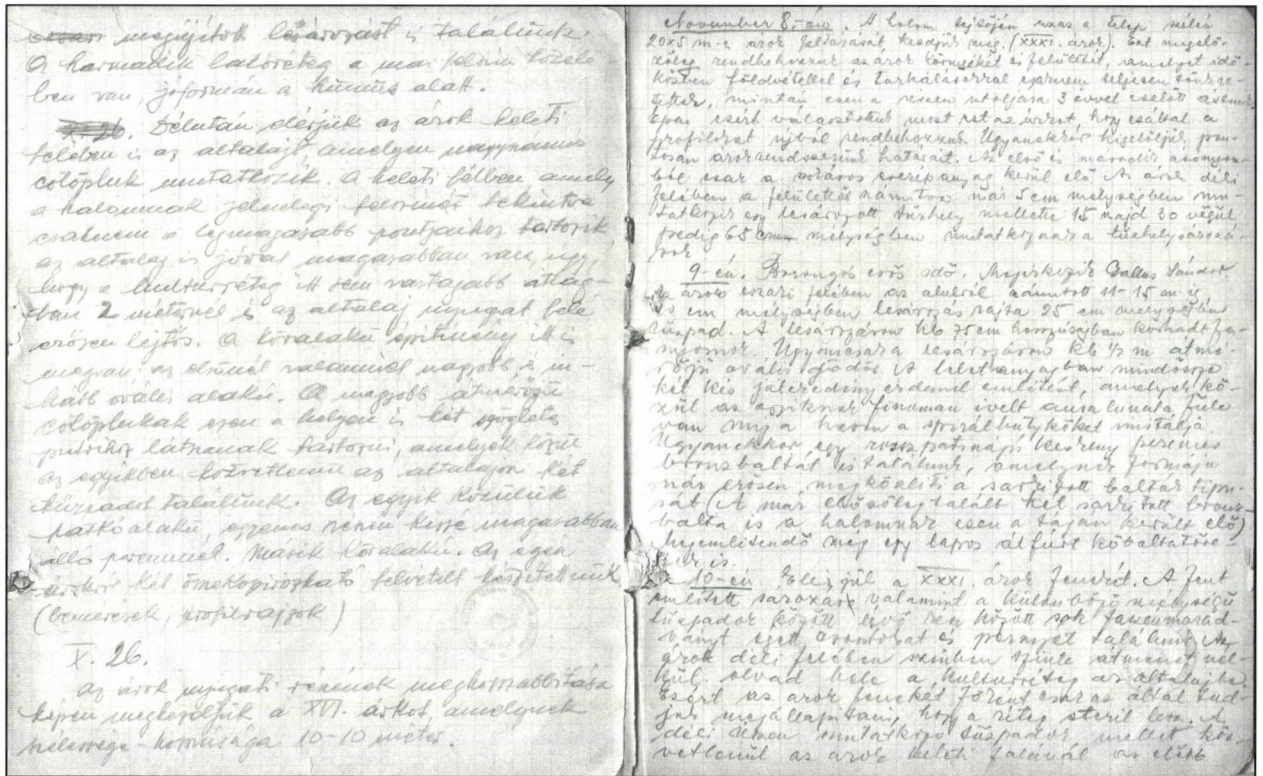 megújított lesározást is találunk.
A harmadik lakóréteg a mai felszín közelé-
ben van, jóformán a humus alatt.
Délután elérjük az árok keleti
felében is az altalajt amelyen nagyszámú
cölöplyuk mutatkozik. A keleti félben amely
a halomnak jelenlegi felszínét tekintve
csaknem a legmagasabb pontjaihoz tartozik,
az altalaj is jóval magasabban van, úgy,
hogy a kultúrréteg itt sem vastagabb átlag-
ban 2 méternél és az altalaj nyugat felé
erősen lejtős. A köralakú építmény itt is
megvan, az elsőnél valamivel nagyobb és in-
kább ovális alakú. A nagyobb átmérőjű
cölöplyukak ezen a helyen is két szögletes
látszanak tartozni, amelyek közül
az egyikben közvetlenül az altalajon két
tűzpadot találtunk. Az egyik közülük
patkóalakú, egyenes részén kissé magasabban
álló peremmel. Másik köralakú. Az egész
árokról két felvételt készítettünk
(bemérések, profilrajzok)
X. 26.
Az árok nyugati részének meghosszabbítása
képen megkezdjük a XVI. árkot, amelynek
szélessége-hosszúsága 10-10 méter.
November 8.-án. A halom északi a telep szélén
20x5 m-es árok feltárását kezdjük meg. (XXXI. árok). Ezt megelő-
zőleg rendbehozzuk az árok környékét és felületét, amelyet idő-
közben földvétellel és turkálásokkal egészen teljesen tönkre-
tettek, miután ezen a részen utoljára 3 évvel ezelőtt ástunk.
Épen ezért választottuk most ezt az árkot, hogy ezáltal a
profilokat újból rendbehozzuk. Ugyanekkor kijelöljük pon-
tosan árokrendszerünk határait. Az első és második ásónyom-
ból csak a szokásos cserépanyag kerül elő. Az árok déli
felében a felülettől számítva már 5 cm mélységben mu-
tatkozik egy lesározott tűzhely mellette 15 majd 30 végül
pedig 65 cm mélységben mutatkoznak a tűzhelysározá-
sok.
9-én. Borongós erős idő. Megérkezik Gallus Sándor
Az árok északi felében az alulról számított 11-15 m-ig
cm mélységben lesározás rajta 25 cm mélységben
tűzpad. A lesározáson kb 75 cm hosszúságban korhadt fa-
nyomok. Ugyancsak a lesározáson kb ½ m átmé-
rőjű ovális gödör. A leletanyagban mindössze
két kis játékedény érdemel említést, amelyek kö-
zül az egyiknek finoman ívelt ansa lunata füle
van míg a három a spirálbütyköket imitálja.
Ugyanekkor egy rossz patinájú keskeny peremes
bronzbaltát is találunk, amelynek formája
már erősen megközelíti a sarkított balták típu-
sát (A már elsősöleg talált két sarkított bronz-
balta is a halomnak ezen a táján került elő)
Megemlítendő még egy lapos átfúrt kőbaltatöre-
dék is.
10-én Elérjük a XXXI. árok fenekét. A fent
említett sározások valamint a különböző mélységű
tűzpadok között lévő rész között sok faszénmarad-
ványt égett csontokat és pernyét találunk. Az
árok déli felében színben szinte átmenet nél-
kül olvad bele a kultúrréteg az altalajba
Ezért az árok fenekét főként csak az által tud-
juk megállapítani, hogy a réteg steril lesz. A
déli részen mutatkozó tűzpadok mellett köz-
vetlenül az árok keleti falánál az előbb